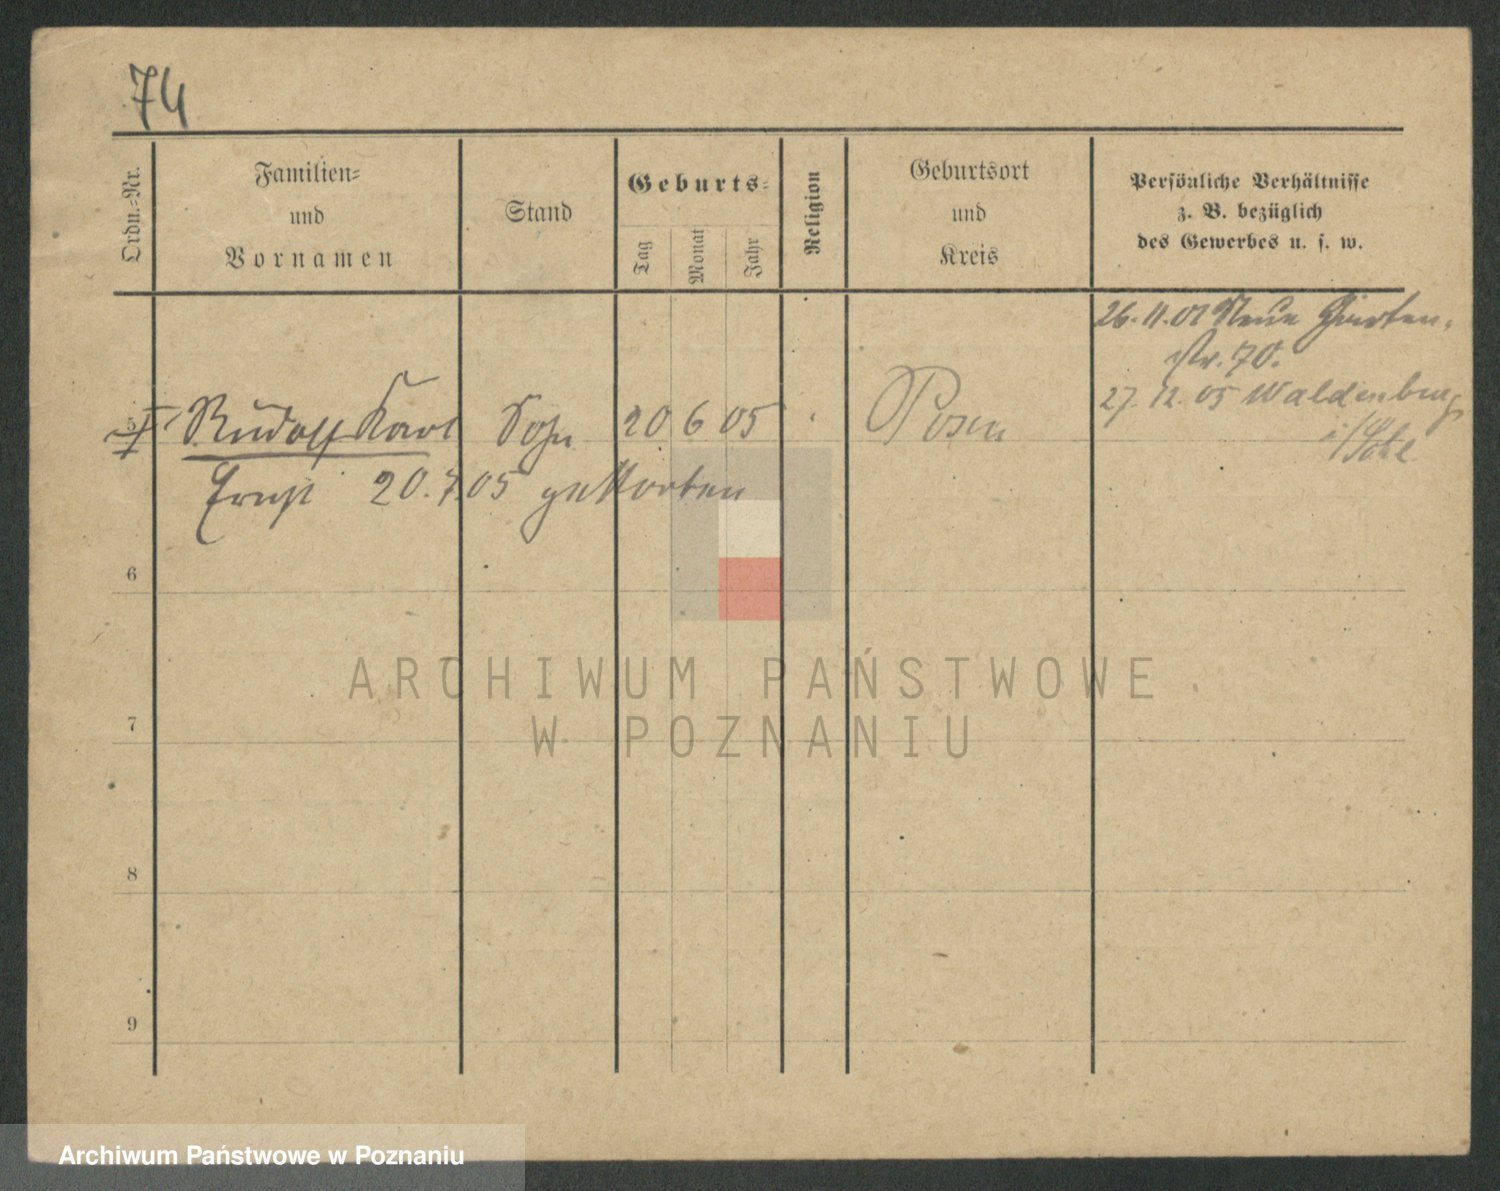 74
Ordn.-Nr.
Familien-
und
Vornamen
Stand
Geburts-
Tag
Monat
Jahr
Religion
Geburtsort
und
Kreis
Persönliche Verhältnisse
z. B. bezüglich
des Gewerbes u. s. w.
26. 11. 01 Neue Garten-
str. 70.
27. 12. 05 Waldenburg
i/Schl.
5 Rudolf Karl Sohn 20 6 05 Posen
Ernst 20. 7. 05 gestorben
6
7
8
9
ARCHIWUM PAŃSTWOWE
W POZNANIU
Archiwum Państwowe w Poznaniu